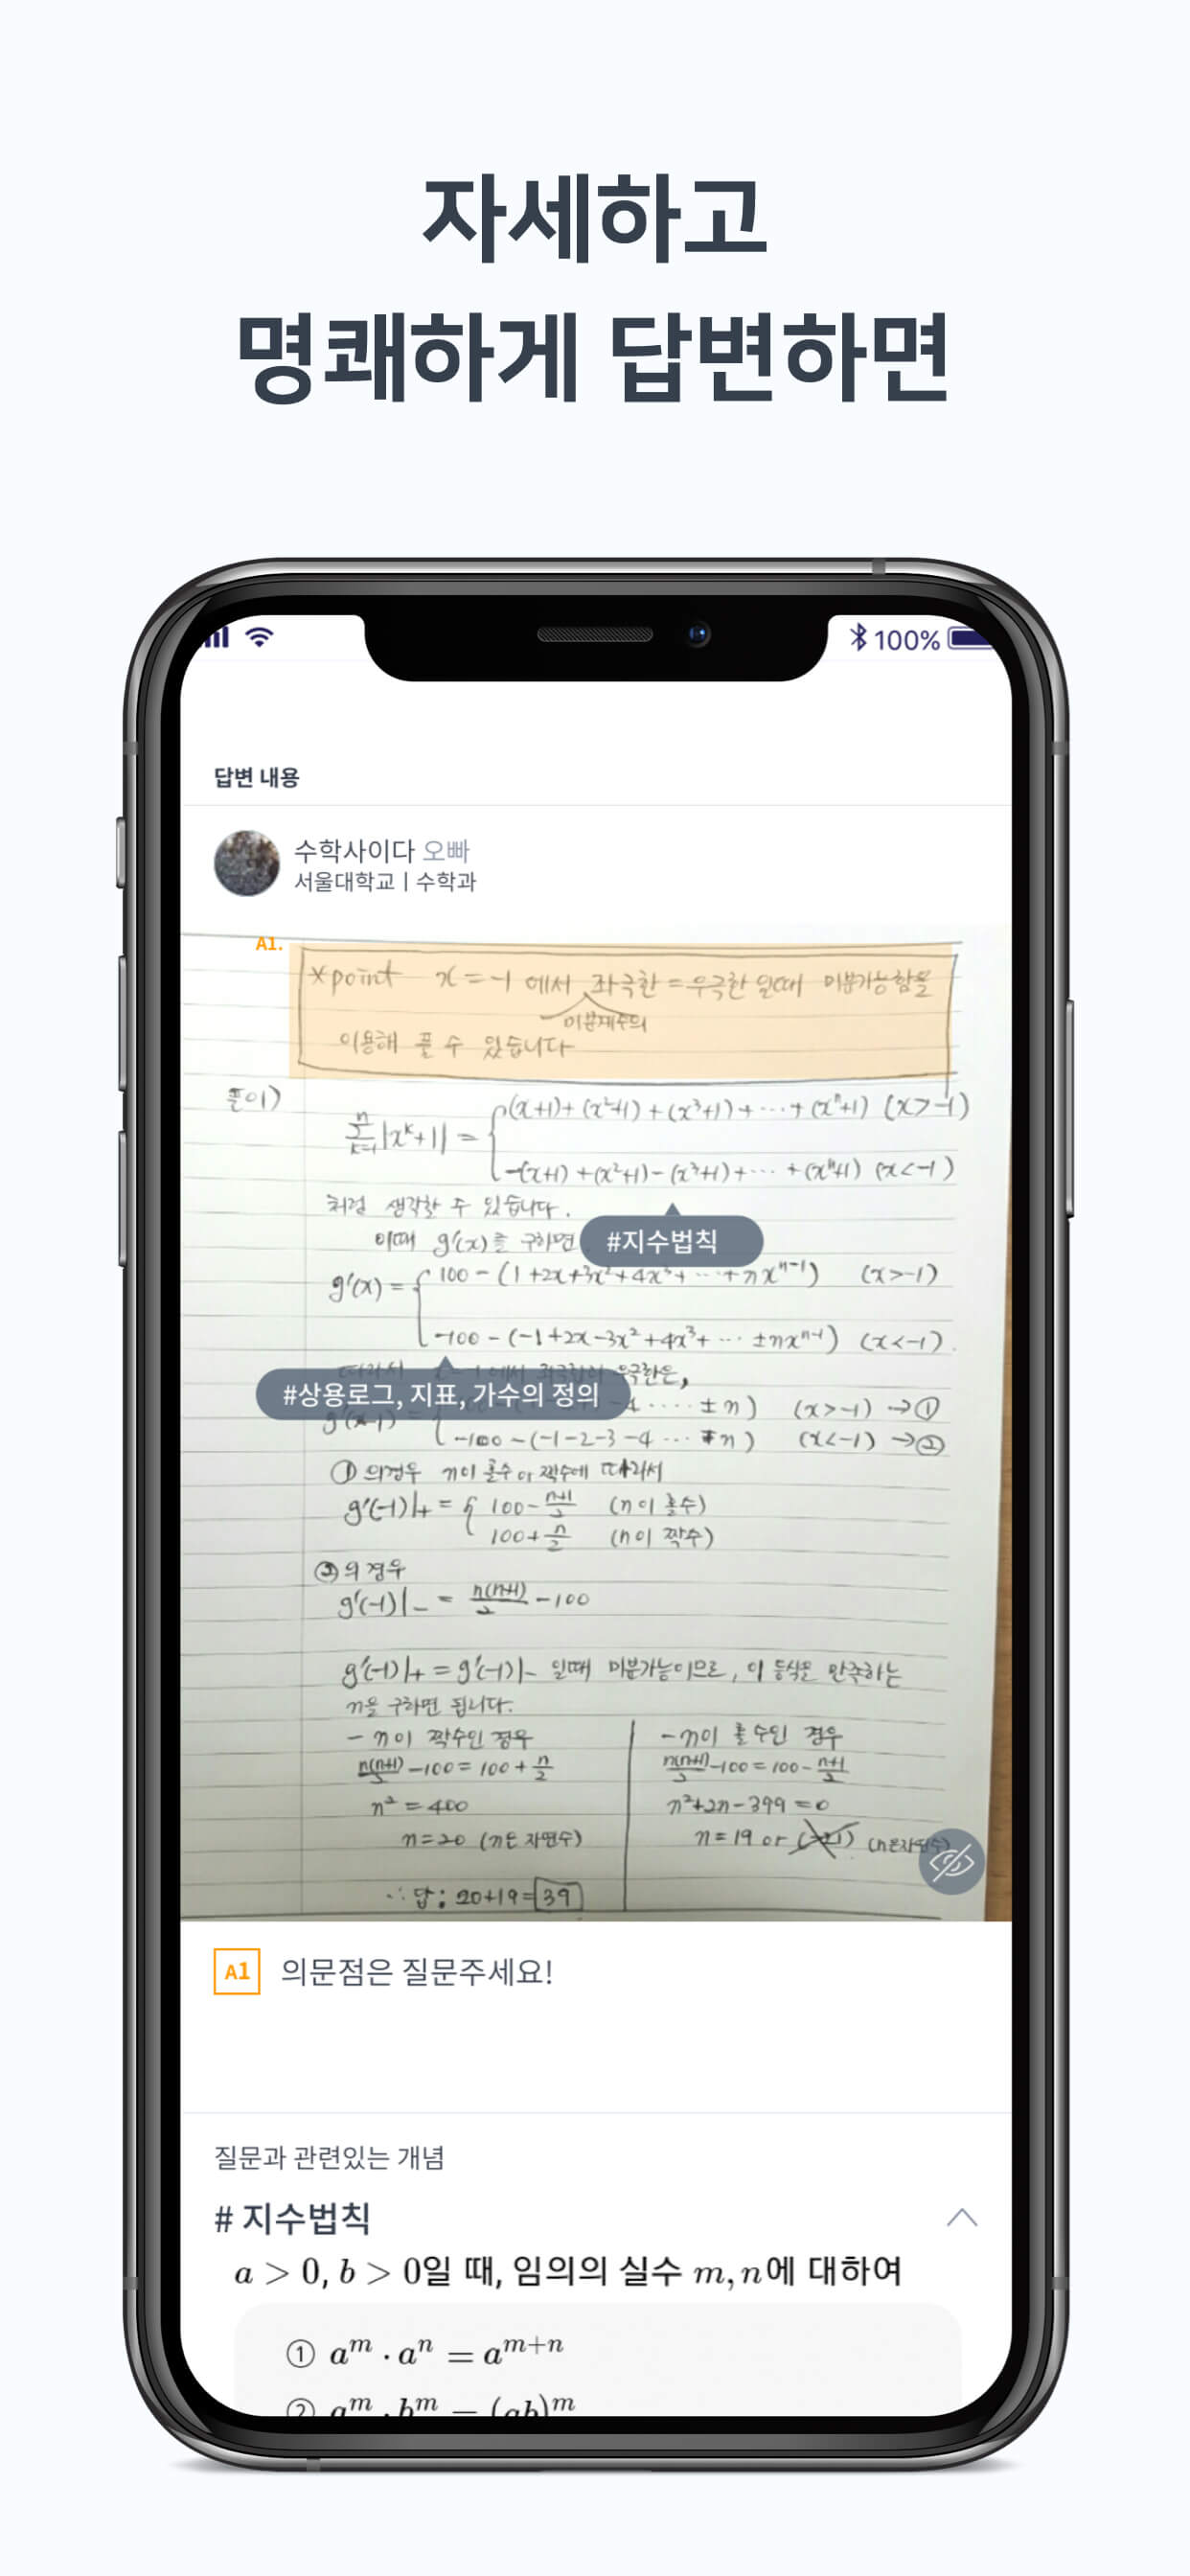 자세하고
명쾌하게 답변하면
100%
답변 내용
수학사이다 오빠
서울대학교 | 수학과
A1.
*point x=-1 에서 좌극한=우극한일때 미분가능함을
미분계수의
이용해 풀 수 있습니다
풀이)
∑_{k=1}^{n}|x^k+1| = { (x+1)+(x²+1)+(x³+1)+⋯+(xⁿ+1) (x>-1)
-(x+1)+(x²+1)-(x³+1)+⋯+(xⁿ+1) (x<-1)
처럼 생각할 수 있습니다.
이때 g'(x)를 구하면
#지수법칙
g'(x) = { 100-(1+2x+3x²+4x³+⋯+nx^{n-1}) (x>-1)
-100-(-1+2x-3x²+4x³+⋯±nx^{n-1}) (x<-1).
우극한은,
#상용로그, 지표, 가수의 정의
-4⋯±n) (x>-1) →①
-100-(-1-2-3-4⋯ n) (x<-1) →②
① 의경우 n이 홀수 or 짝수에 따라서
g'(-1)|+ = { 100-\frac{n+1}{2} (n이 홀수)
100+\frac{n}{2} (n이 짝수)
②의 경우
g'(-1)|- = \frac{n(n+1)}{2}-100
g'(-1)|+ = g'(-1)|- 일때 미분가능이므로, 이 등식을 만족하는
n을 구하면 됩니다.
- n이 짝수인 경우
\frac{n(n+1)}{2}-100=100+\frac{n}{2}
n²=400
n=20 (n은 자연수)
- n이 홀수인 경우
\frac{n(n+1)}{2}-100=100-\frac{n+1}{2}
n²+2n-399=0
n=19 or (-21) (n은자연수)
∴답: 20+19=39
A1 의문점은 질문주세요!
질문과 관련있는 개념
# 지수법칙
a > 0, b > 0일 때, 임의의 실수 m, n에 대하여
① a^m · a^n = a^{m+n}
② a^m · b^m = (ab)^m